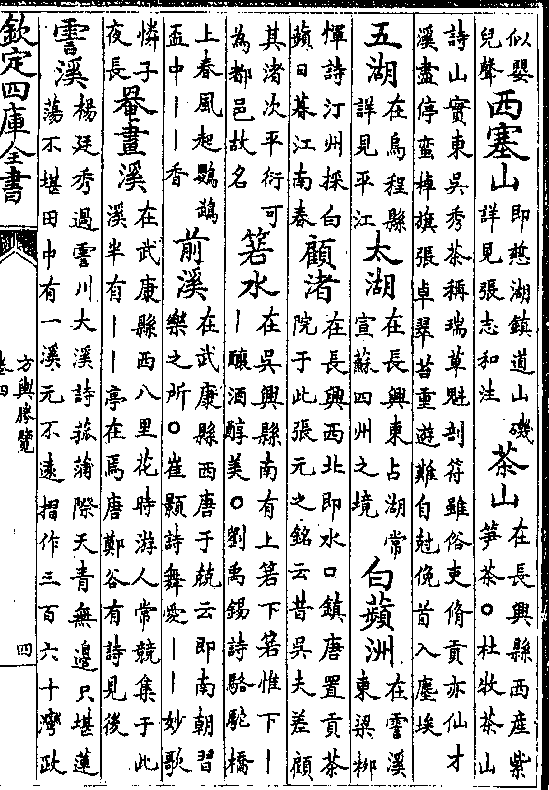 似嬰
兒聲
西塞山
即慈湖鎮道山磯
詳見張志和注
茶山
在長興縣西產紫
筍茶〇杜牧茶山
詩山實東吳秀茶稱瑞草魁剖符雖俗吏脩貢亦仙才
溪盡停蠻棹旗張卓翠苔重遊難自尅俛首入塵埃
五湖
在烏程縣
詳見平江
太湖
在長興東占湖常
宣蘇四州之境
白蘋洲
在霅溪
東梁柳
惲詩汀州採白
蘋日暮江南春
顧渚
在長興西北即水口鎮唐置貢茶
院于此張元之銘云昔吳夫差顧
其渚次平衍可
為都邑故名
箬水
在吳興縣南有上箬下箬惟下丨
丨釀酒醇美〇劉禹錫詩駱駝橋
上春風起鸚鵡
盃中丨丨香
前溪
在武康縣西唐于兢云即南朝習
樂之所〇崔顥詩舞愛丨丨妙歌
憐子
夜長
罨畫溪
在武康縣西八里花時游人常競集于此
溪半有丨丨亭在焉唐鄭谷有詩見後
霅溪
楊廷秀過霅川大溪詩菰蒲際天青無邊只堪蓮
蕩不堪田中有一溪元不遠摺作三百六十灣政
欽定四庫全書
方輿勝覽
卷四
四